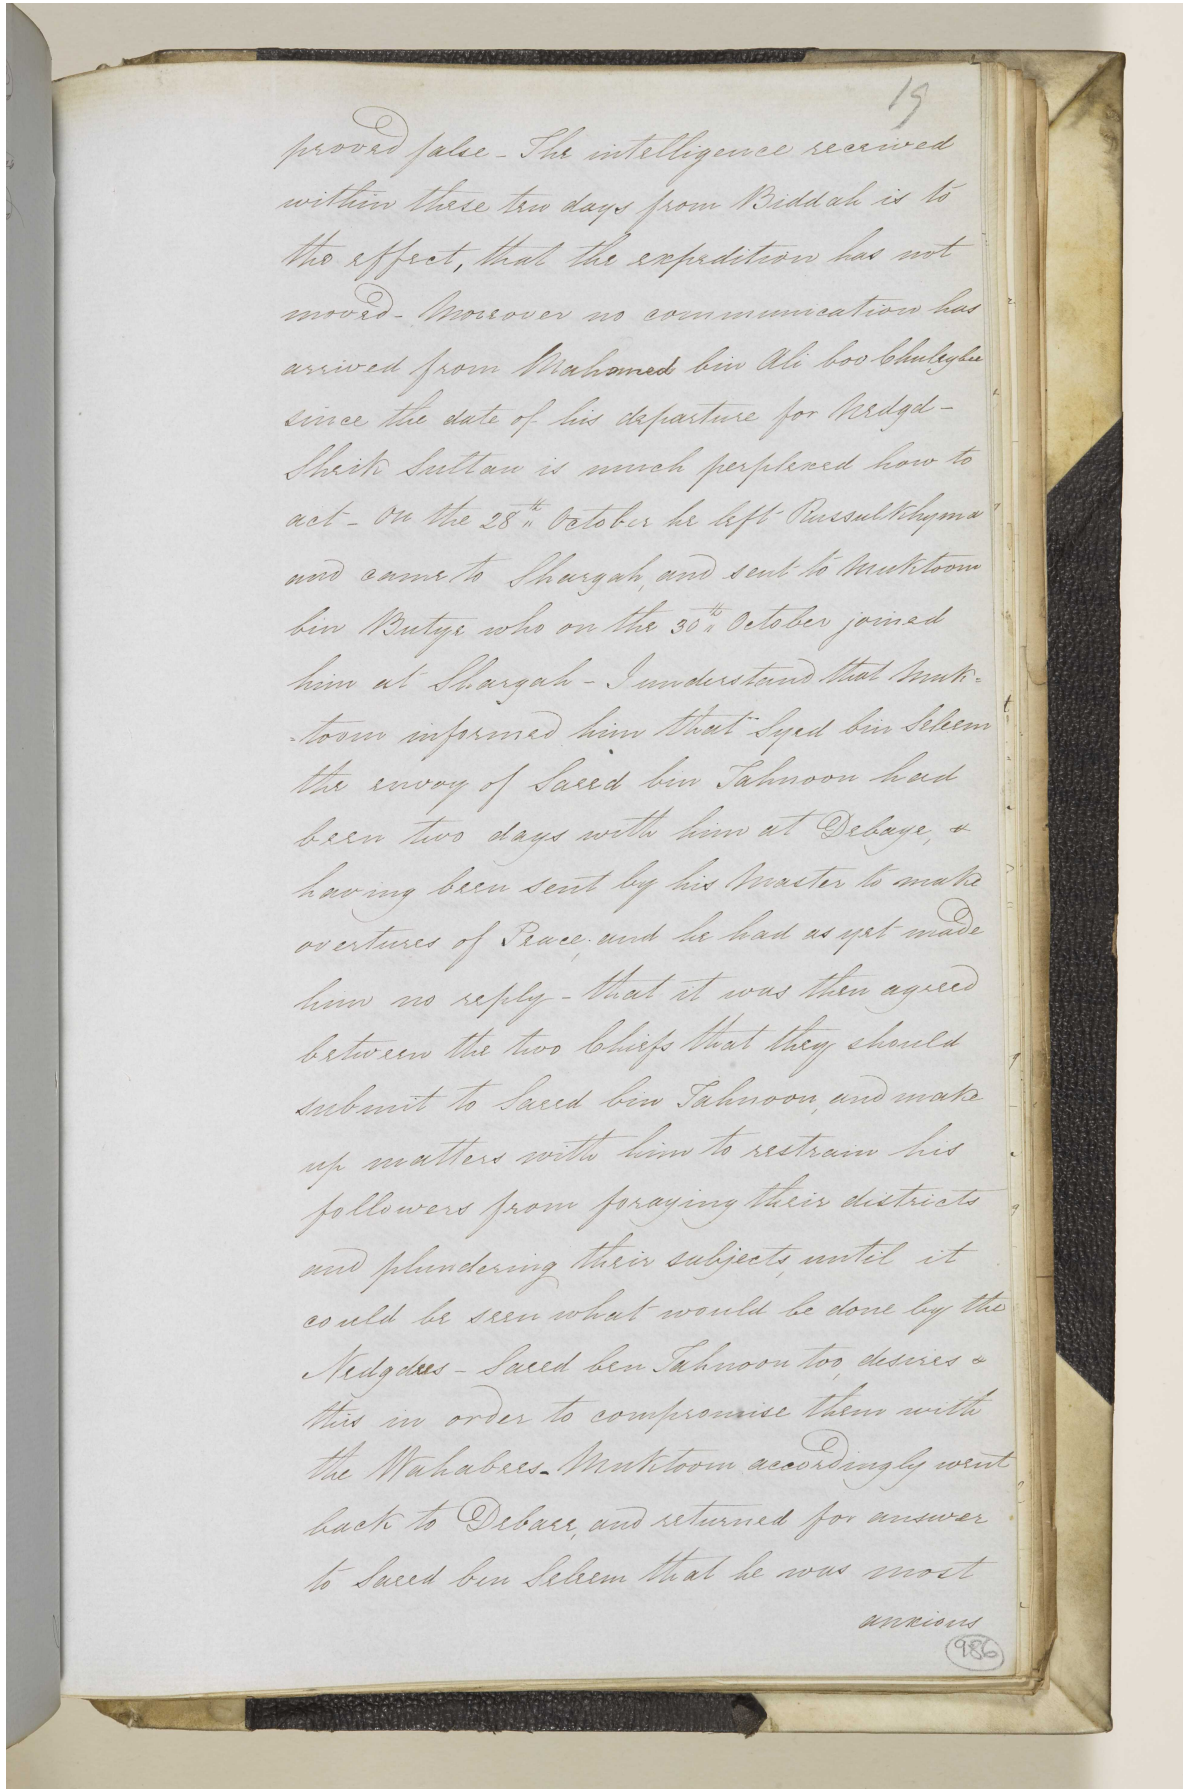 19
proved false - The intelligence received
within these ten days from Biddah is to
the effect, that the expedition has not
moved - Moreover no communication has
arrived from Mahomed bin Ali boo Chuleybee
since the date of his departure for Nedgd -
Sheik Sultan is much perplexed how to
act - On the 28th October he left Russulkhyma
and came to Shargah, and sent to Muktoom
bin Butye who on the 30th October joined
him at Shargah - I understand that Muk=
=toom informed him that Syed bin Seleem
the envoy of Saeed bin Tahnoon had
been two days with him at Debaye, &
having been sent by his Master to make
overtures of Peace, and he had as yet made
him no reply - that it was then agreed
between the two Chiefs that they should
submit to Saeed bin Tahnoon, and make
up matters with him to restrain his
followers from foraying their districts
and plundering their subjects, until it
could be seen what would be done by the
Nedgdees - Saeed ben Tahnoon too, desires &
this in order to compromise them with
the Wahabees - Muktoom accordingly went
back to Debaee, and returned for answer
to Saeed ben Seleem that he was most
anxious
986